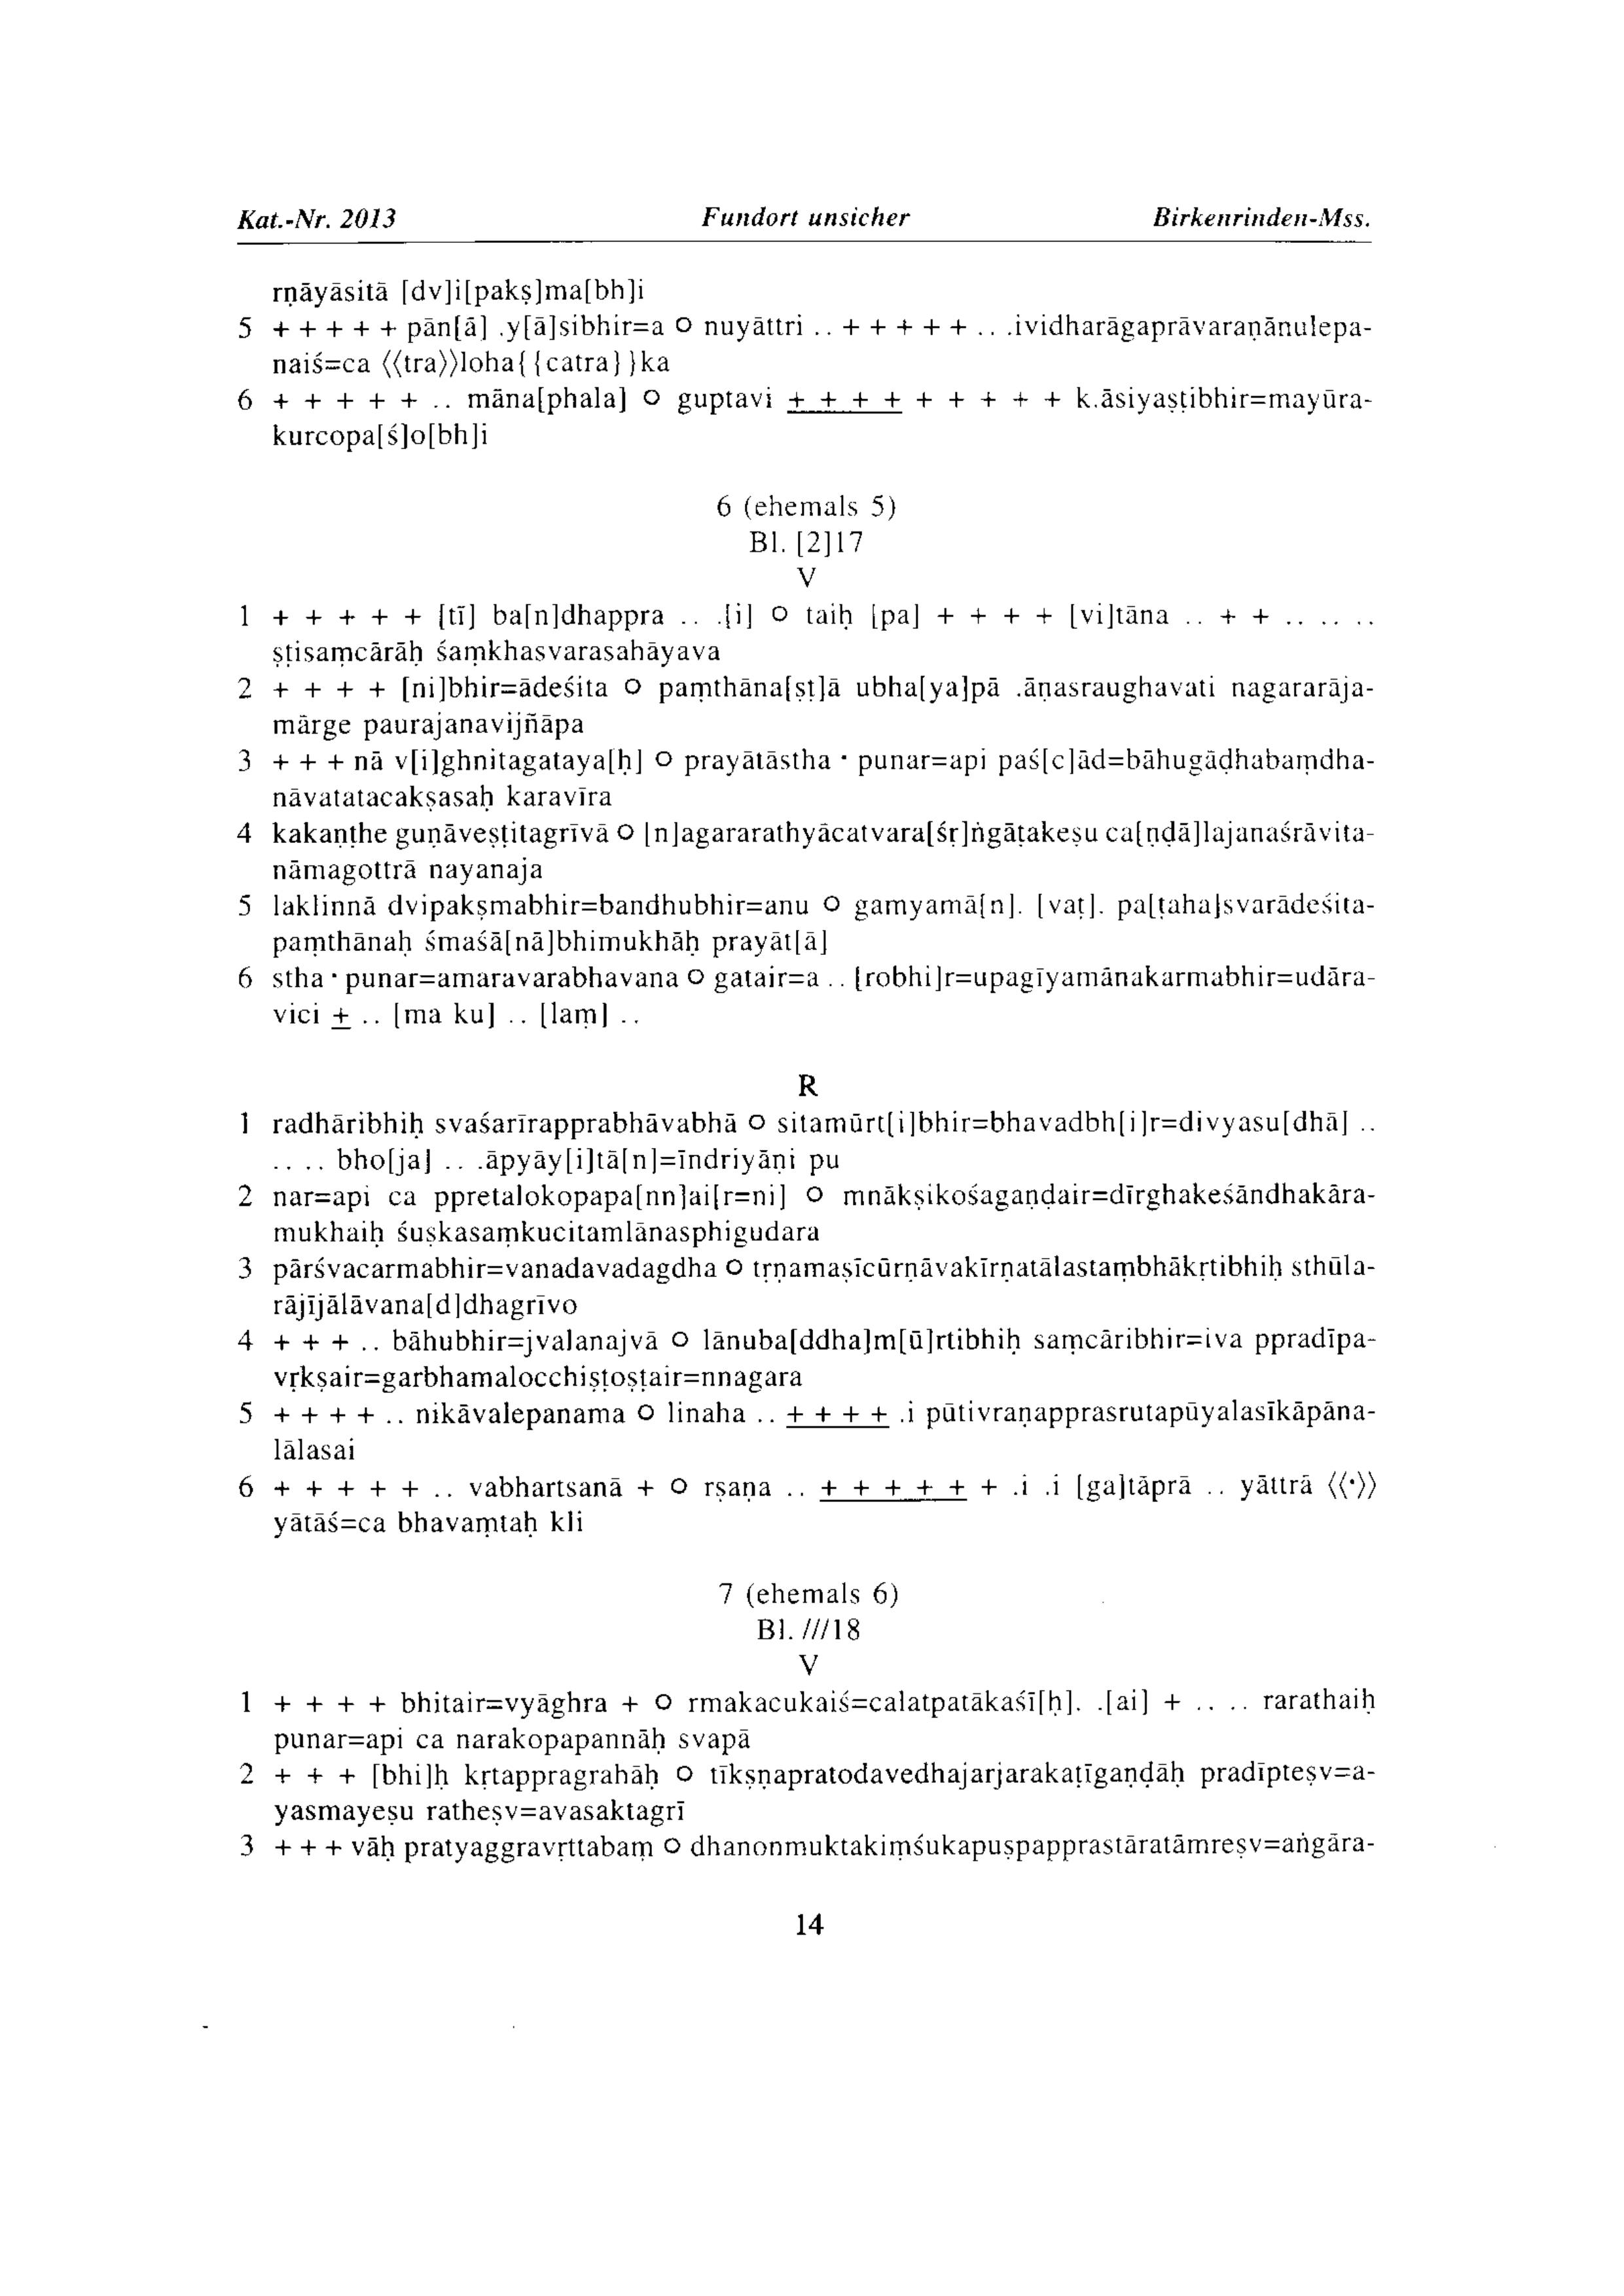 Kat.-Nr. 2013 Fundort unsicher Birkenrinden-Mss.
rṇāyāsitā [dv]i[pakṣ]ma[bh]i
5 + + + + + pān[ā] .y[ā]sibhir=a O nuyāttri .. + + + + + .. .ividharāgaprāvaraṇānulepa-
naiś=ca ⟨⟨tra⟩⟩loha{{catra}}ka
6 + + + + + .. māna[phala] O guptavi + + + + + + + + + k.āsiyaṣṭibhir=mayūra-
kurcopa[ś]o[bh]i
6 (ehemals 5)
Bl. [2]17
V
1 + + + + + [tī] ba[n]dhappra .. .[i] O taiḥ [pa] + + + + [vi]tāna .. + + .. .. ..
ṣṭisaṃcārāḥ śaṃkhasvarasahāyava
2 + + + + [ni]bhir=ādeśita O paṃthāna[ṣṭ]ā ubha[ya]pā .āṇasraughavati nagararāja-
mārge paurajanavijñāpa
3 + + + nā v[i]ghnitagataya[ḥ] O prayātāstha · punar=api paś[c]ād=bāhugāḍhabaṃdha-
nāvatatacakṣasaḥ karavīra
4 kakaṇṭhe guṇāveṣṭitagrīvā O [n]agararathyācatvara[śṛ]ṅgāṭakeṣu ca[ṇḍā]lajanaśrāvita-
nāmagottrā nayanaja
5 laklinnā dvipakṣmabhir=bandhubhir=anu O gamyamā[n]. [vaṭ]. pa[ṭaha]svarādeśita-
paṃthānaḥ śmaśā[nā]bhimukhāḥ prayāt[ā]
6 stha · punar=amaravarabhavana O gatair=a .. [robhi]r=upagīyamānakarmabhir=udāra-
vici + .. [ma ku] .. [laṃ] ..
R
1 radhāribhiḥ svaśarīrapprabhāvabhā O sitamūrt[i]bhir=bhavadbh[i]r=divyasu[dhā] ..
.. .. bho[ja] .. .āpyāy[i]tā[n]=īndriyāṇi pu
2 nar=api ca ppretalokopapa[nn]ai[r=ni] O mnākṣikośagaṇḍair=dīrghakeśāndhakāra-
mukhaiḥ śuṣkasaṃkucitamlānasphigudara
3 pārśvacarmabhir=vanadavadagdha O tṛṇamaṣīcūrṇāvakīrṇatālastaṃbhākṛtibhiḥ sthūla-
rājījālāvana[d]dhagrīvo
4 + + + .. bāhubhir=jvalanajvā O lānuba[ddha]m[ū]rtibhiḥ saṃcāribhir=iva ppradīpa-
vṛkṣair=garbhamalocchiṣṭoṣṭair=nnagara
5 + + + + .. nikāvalepanama O linaha .. + + + + .i pūtivraṇapprasrutapūyalasīkāpāna-
lālasai
6 + + + + + .. vabhartsanā + O rṣaṇa .. + + + + + + .i .i [ga]tāprā .. yāttrā ⟨⟨·⟩⟩
yātāś=ca bhavaṃtaḥ kli
7 (ehemals 6)
Bl. ///18
V
1 + + + + bhitair=vyāghra + O rmakacukaiś=calatpatākaśī[ḥ]. .[ai] + .. .. rarathaiḥ
punar=api ca narakopapannāḥ svapā
2 + + + [bhi]ḥ kṛtappragrahāḥ O tīkṣṇapratodavedhajarjarakaṭīgaṇḍāḥ pradīpteṣv=a-
yasmayeṣu ratheṣv=avasaktagrī
3 + + + vāḥ pratyaggravṛttabaṃ O dhanonmuktakiṃśukapuṣpapprastāratāmreṣv=aṅgāra-
14